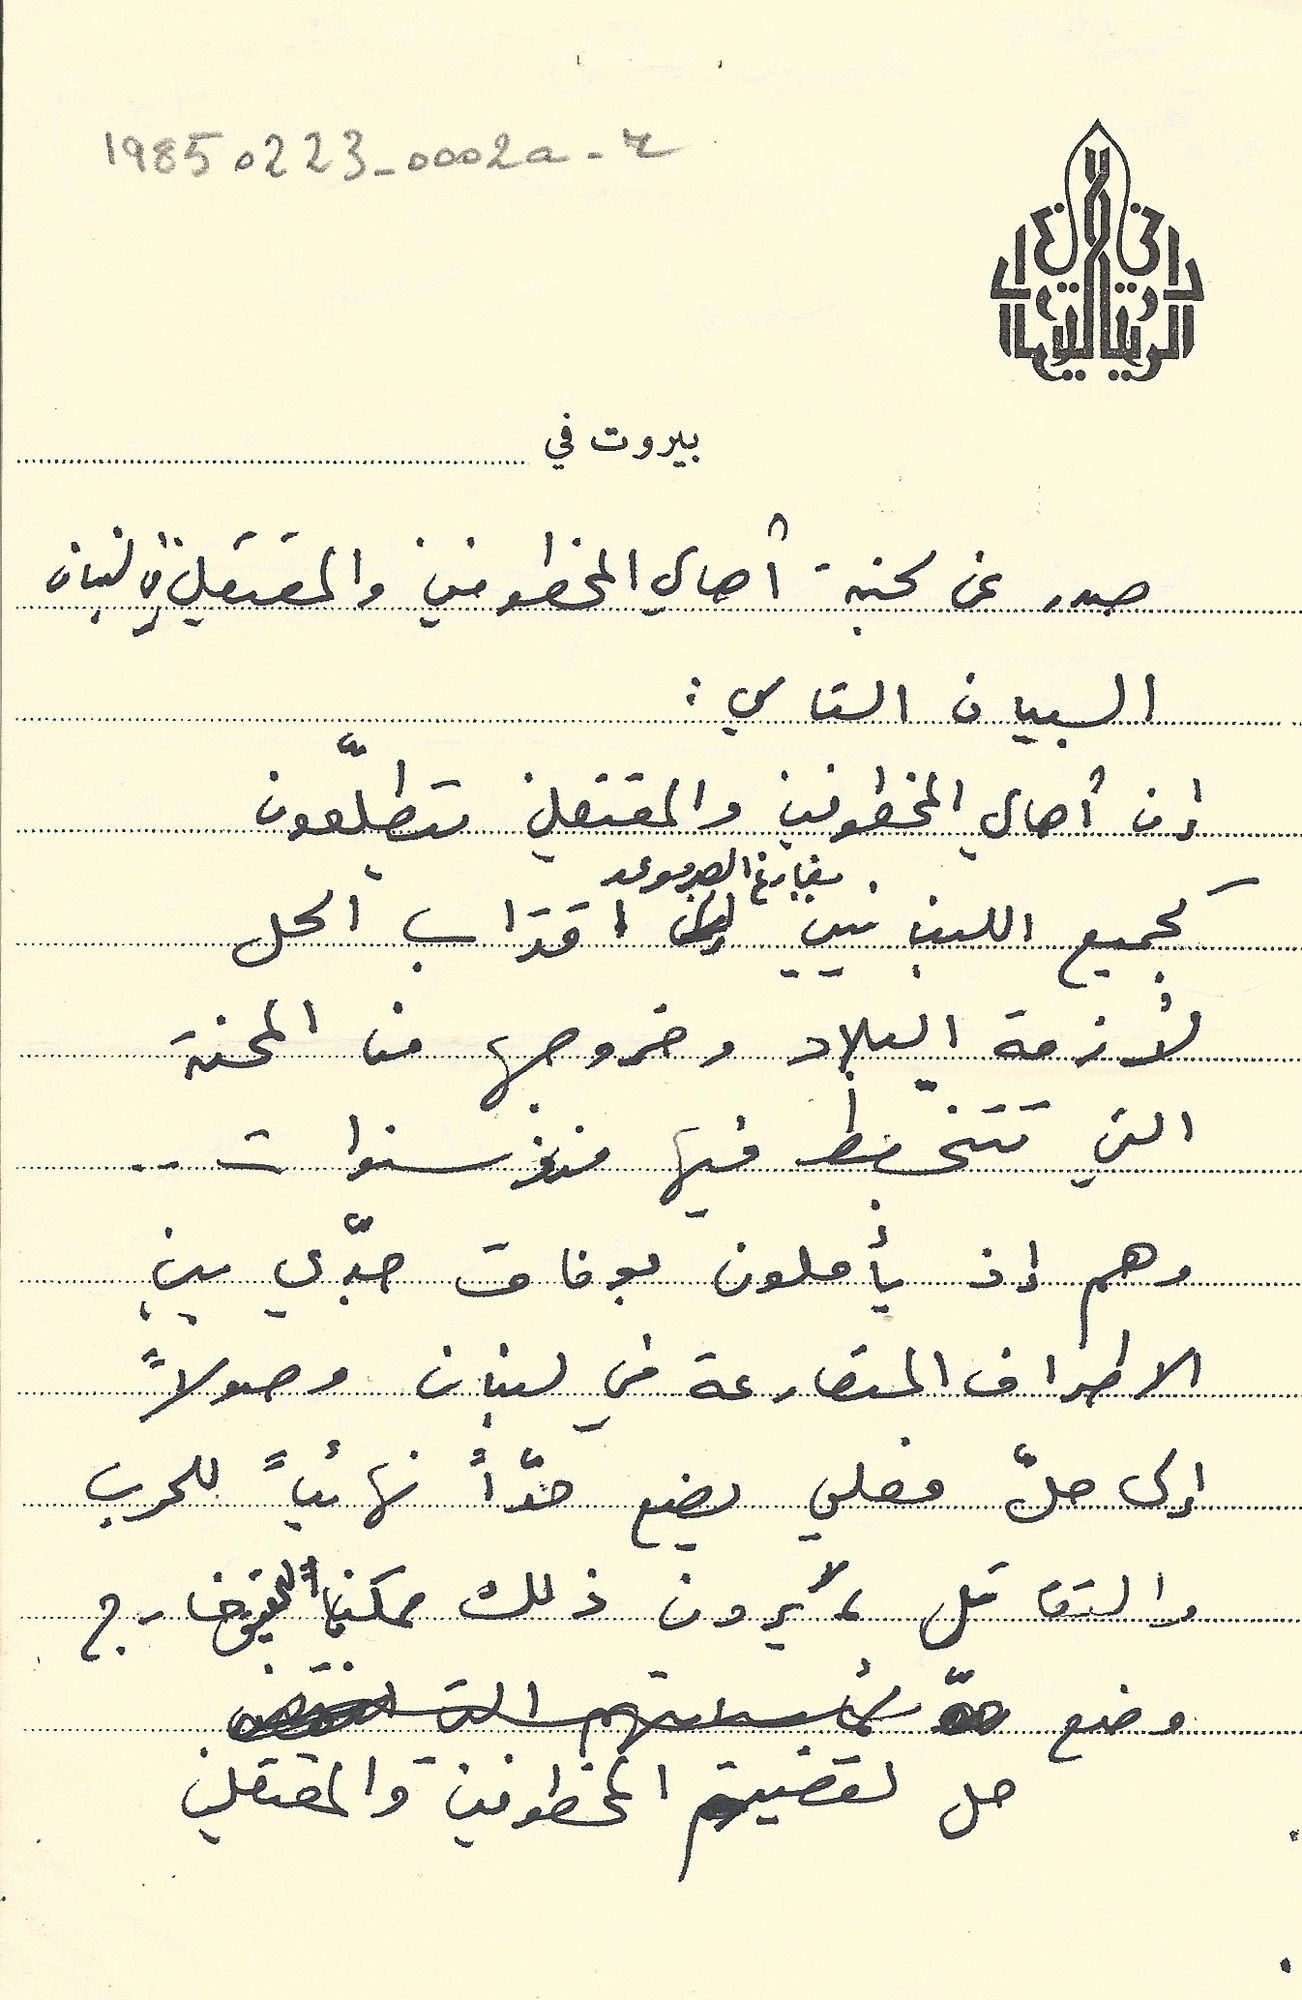 19850223_0002a-r
بيروت في
صدر عن لجنة أهالي المخطوفين والمعتقلين في لبنان
البيان التالي :
إن أهالي المخطوفين والمعتقلين يتطلّعون
بفارغ الصبر موعد
كجميع اللبنانيين اقتراب الحل
لأزمة البلاد وخروجها من المحنة
التي تتخبط فيها منذ سنوات ..
وهم إذ يأملون بوفاق جدّي بين
الاطراف المتصارعة في لبنان وصولاً
إلى حلّ فعلي يضع حدّاً نهائياً للحرب
والتقاتل ، لا يرون ذلك ممكناً خارج
وضع
حل لقضية المخطوفين والمعتقلين